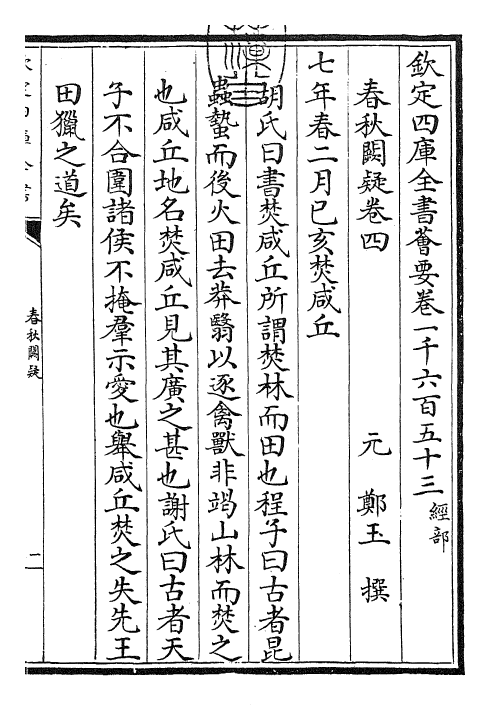 欽定四庫全書薈要卷一千六百五十三 經部
春秋闕疑卷四
元 鄭玉 撰
七年春二月己亥焚咸丘
胡氏曰書焚咸丘所謂焚林而田也程子曰古者昆
蟲蟄而後火田去莽翳以逐禽獸非竭山林而焚之
也咸丘地名焚咸丘見其廣之甚也謝氏曰古者天
子不合圍諸侯不掩羣示愛也舉咸丘焚之失先王
田獵之道矣
春秋闕疑
二